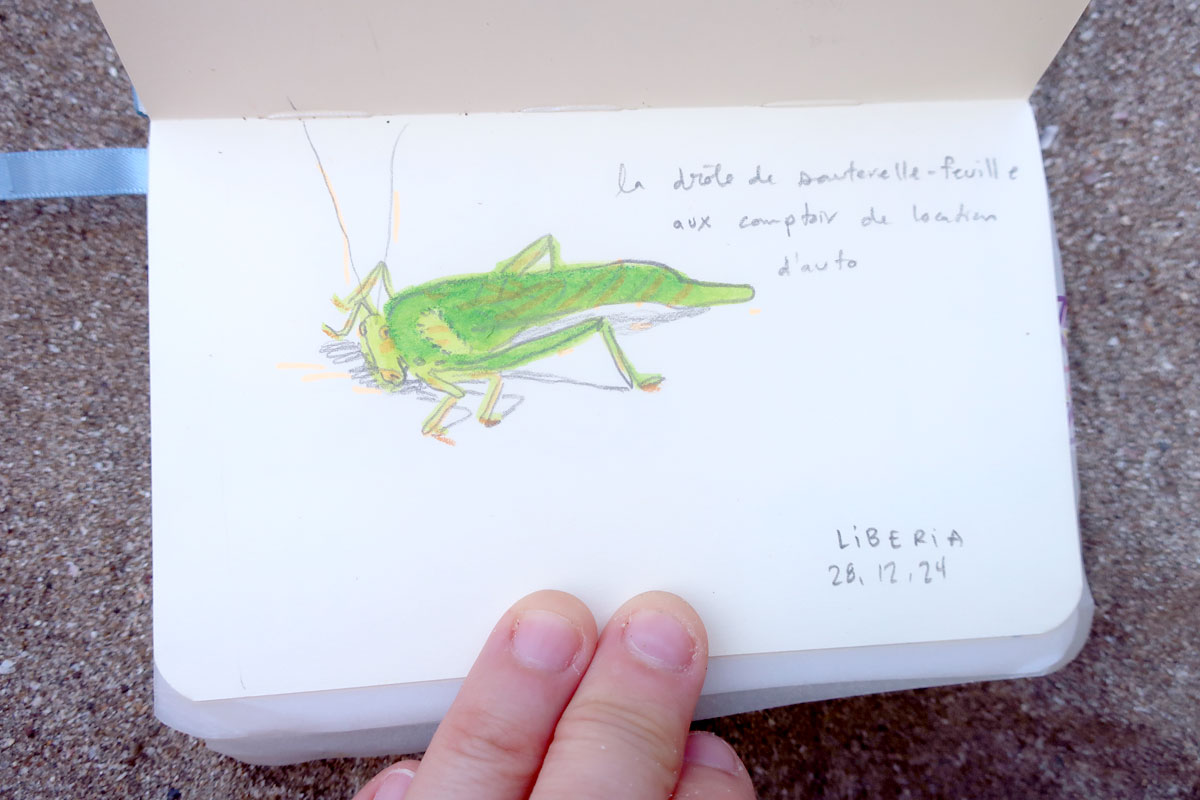 la drôle de sauterelle-feuille
aux comptoir de location
d'auto
LiBERiA
28.12.24